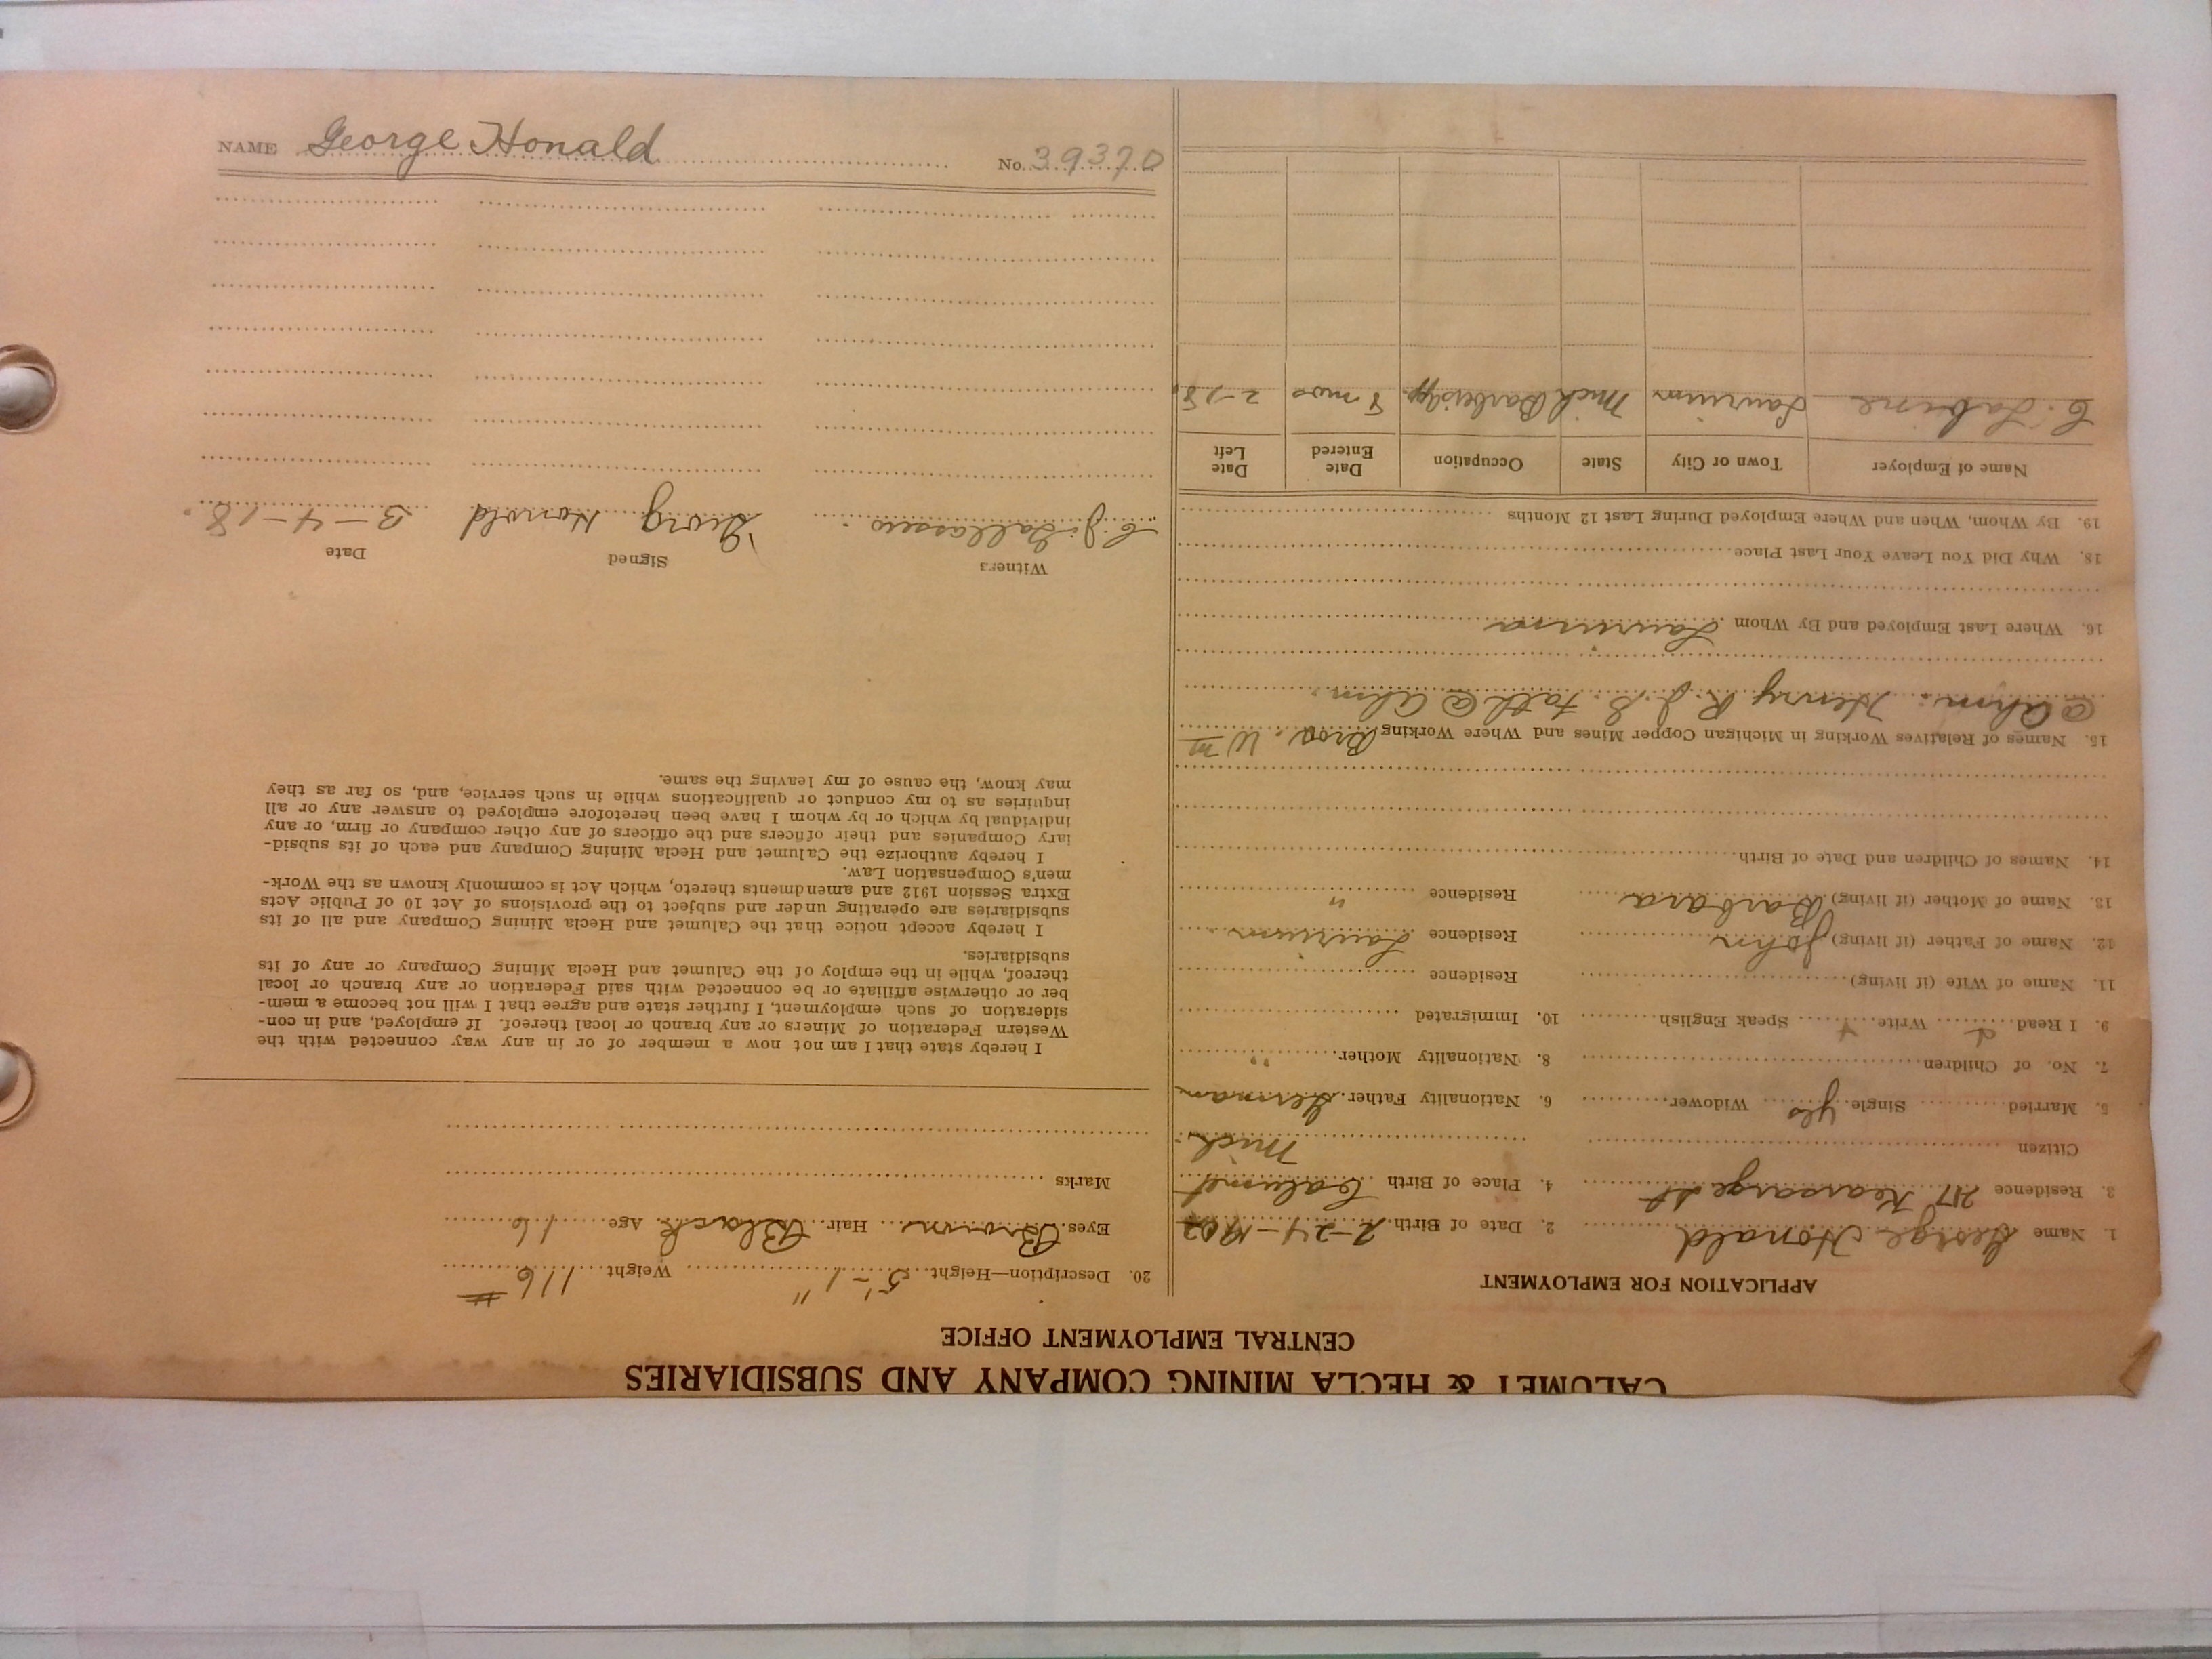 CALUMET & HECLA MINING COMPANY AND SUBSIDIARIES
CENTRAL EMPLOYMENT OFFICE
APPLICATION FOR EMPLOYMENT
1. Name George Honald 2. Date of Birth 2-24-1902
3. Residence 217 Kearsarge St 4. Place of Birth Calumet
Citizen Mich.
5. Married Single yes Widower 6. Nationality Father German
7. No. of Children 8. Nationality Mother "
9. I Read Write Speak English 10. Immigrated
11. Name of Wife (if living) Residence
12. Name of Father (if living) John Residence Laurium
13. Name of Mother (if living) Barbara Residence "
14. Names of Children and Date of Birth
15. Names of Relatives Working in Michigan Copper Mines and Where Working Bros. Wm
@ Ahm. Henry R.J.S. Fath @ Ahm.
16. Where Last Employed and By Whom Laurium
18. Why Did You Leave Your Last Place
19. By Whom, When and Where Employed During Last 12 Months
Name of Employer Town or City State Occupation Date Entered Date Left
Laurium Mich 8 mos 2-18.
20. Description—Height 5'-1" Weight 116 #
Eyes Brown Hair Black Age 16
Marks
I hereby state that I am not now a member of or in any way connected with the
Western Federation of Miners or any branch or local thereof. If employed, and in con-
sideration of such employment, I further state and agree that I will not become a mem-
ber or otherwise affiliate or be connected with said Federation or any branch or local
thereof, while in the employ of the Calumet and Hecla Mining Company or any of its
subsidiaries.
I hereby accept notice that the Calumet and Hecla Mining Company and all of its
subsidiaries are operating under and subject to the provisions of Act 10 of Public Acts
Extra Session 1912 and amendments thereto, which Act is commonly known as the Work-
men's Compensation Law.
I hereby authorize the Calumet and Hecla Mining Company and each of its subsid-
iary Companies and their officers and the officers of any other company or firm, or any
individual by which or by whom I have been heretofore employed to answer any or all
inquiries as to my conduct or qualifications while in such service, and, so far as they
may know, the cause of my leaving the same.
Witness Signed Date
Georg Honold 3-4-18.
NAME George Honald No. 39370